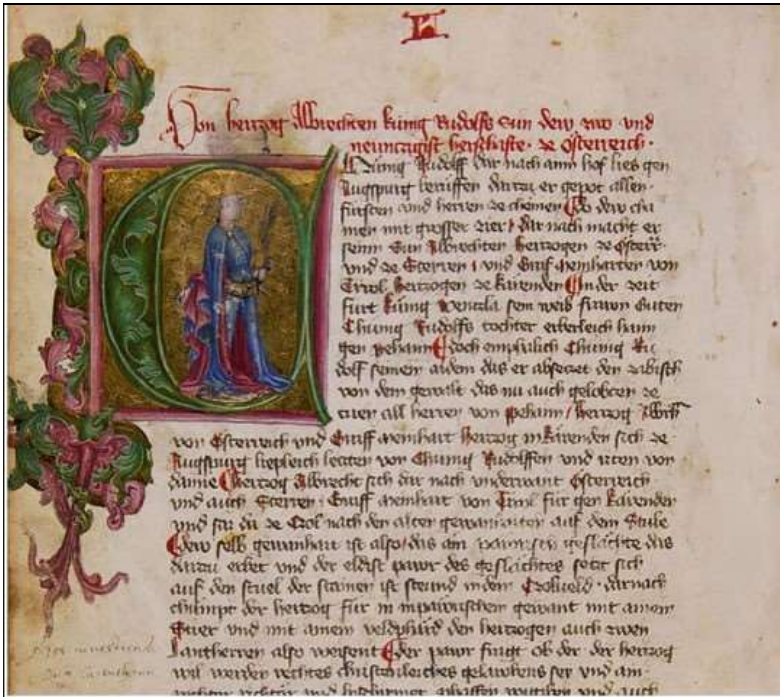 Von hertzog Albrechten kunig Rudolfs Sun dew zwo und
newntzigist herschafte ze Osterreich
hunig Rudolff dar nach ainn hof lies gen
Augspurg beruffen dartzu er gepot allen
fursten vnd herren ze chomen Do dew cha
men mit grosser zier dar nach macht er
seinn Sun Albrechten hertzogen ze Osterr
vnd ze Steyren vnd Graf Meinharten von
Tirol hertzogen ze kärenden In der zeit
furt kunig wentzla sein weib frawn Guten
Chunig Rudolfs tochter erberleich haim
gen pehaim Doch emphalich Chunig Ru
dolf seinem aidem das er absetzet den zabisch
von dem gewalt das nu auch gelobten ze
tuen all herren von pehaim hertzog Albr
von Osterreich vnd Graff meinhart hertzog in kärenden sich ze
Augspurg liepleich letzten von Chunig Rudolffen vnd riten von
danne hertzog Albrecht sich dar nach vnderwant Osterreich
vnd auch Steyren Graff meinhart von Tirol für gen kärenden
vnd zu Zol nach den alten gewanhaiten auf dem Stule
dew selb gewanhait ist also das ain pawrisch geslächte das
dartzu erbet vnd der eldist pawr des geslächtes setzt sich
auf den stuel der stainen ist steund in dem Zolueld darnach
chumpt der hertzog für in in pawrischem gewant mit ainem
Stier vnd mit ainem veldphärd den hertzogen auch zwen
lantherren also weisent der pawr fragt ob der der hertzog
wil werden rechtes christenleiches gelawbens sey vnd ain